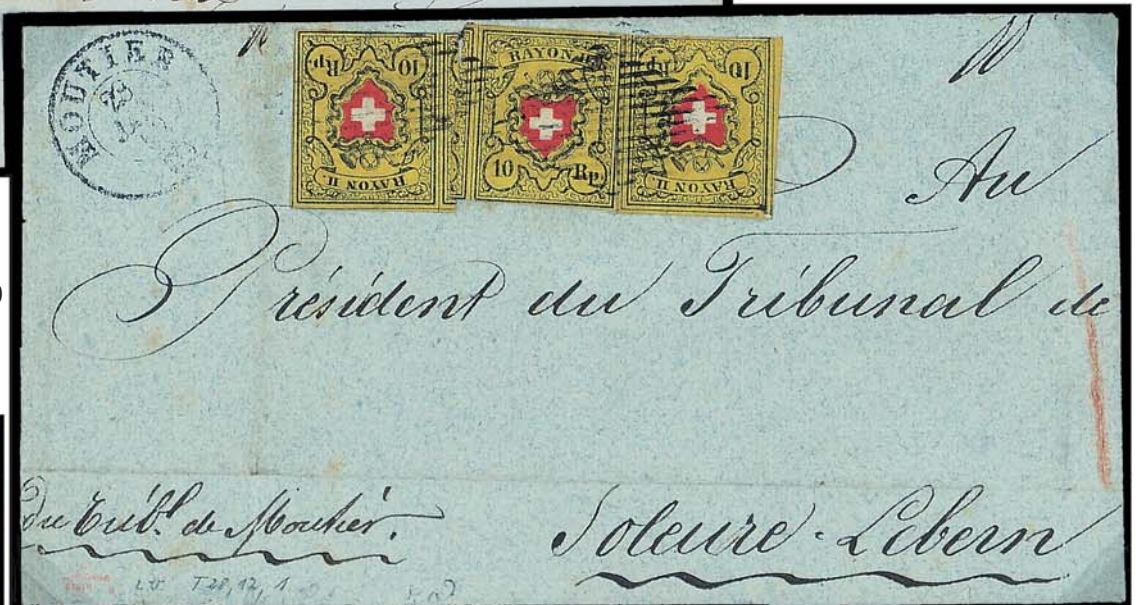 MOUTIER
10 Rp.
RAYON II.
RAYON II.
10 Rp.
10 Rp.
RAYON II.
Au
Président du Tribunal de
du Tribl. de Moutier.
Soleure-Lebern
T 28, 12, 1